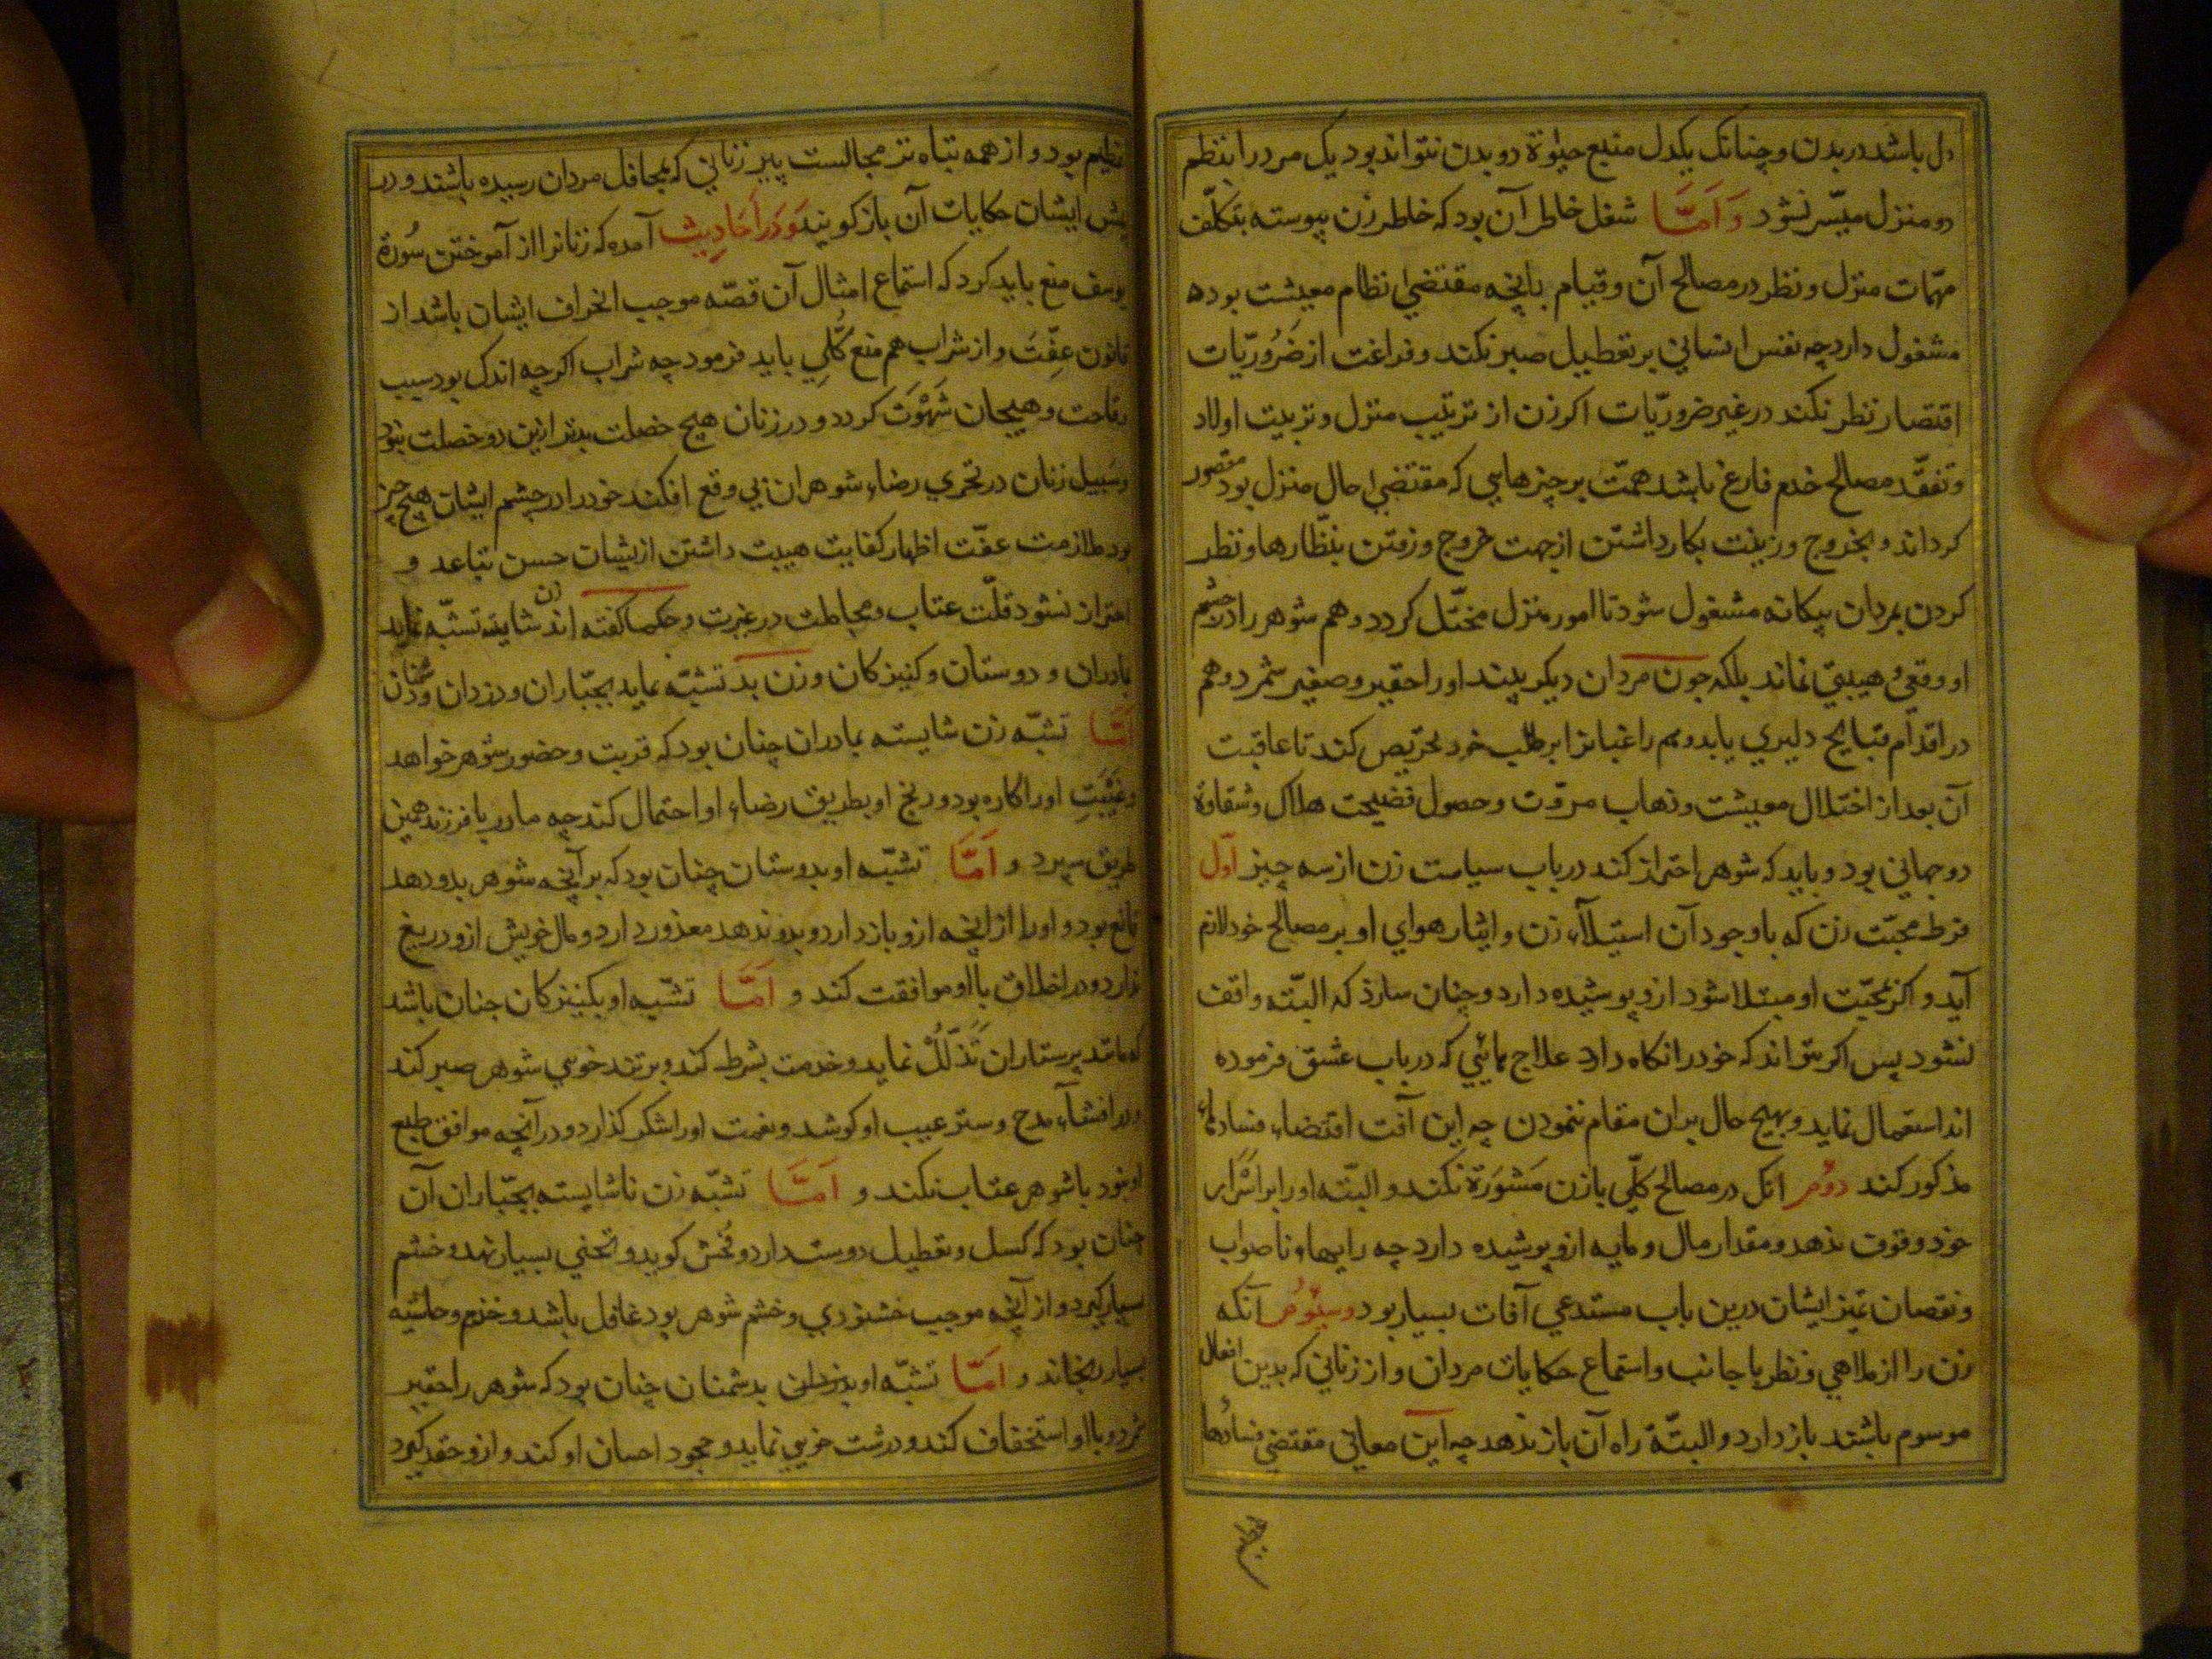 دل باشد در بدن و چنانک یکدل منبع حیوة دو بدن نتواند بود یک مرد را بنظم
دو منزل میسّر نشود وَ اَمَّا شغل خاطر آن بود که خاطر زن پیوسته بتکلّف
مهمّات منزل و نظر در مصالح آن و قیام بانچه مقتضی نظام معیشت بوده
مشغول دارد چه نفس انسانی بر تعطیل صبر نکند و فراغت از ضَرُوریّات
اقتصار نظر نکند در غیر ضروریّات اکر زن از ترتیب منزل و تربیت اولاد
و تفقّد مصالح خدم فارغ باشد همّت بر چیزهایی که مقتضی حال منزل بود مقصور
کرداند و بخروج و زینت بکار داشتن از جهت خروج و رفتن بنظّارها و نظر
کردن بمردان بیکانه مشغول شود تا امور منزل مختّل کردد و هم شوهر را در چشم
او وقعی و هیبتی نماند بلکه چون مردان دیکر بیند او را حقیر و صغیر شمرد و هم
در اقدام قبایح دلیری یابد و هم راغبانرا بر طلب خود تحریص کند تا عاقبت
آن بعد از اختلال معیشت و ذهاب مروّت و حصول فضیحت هلاک و شقاوة
دو جهانی بود و باید که شوهر احتراز کند در باب سیاست زن از سه چیز اوّل
فرط محبّت زن که با وجود آن استیلآء زن و ایثار هوای او بر مصالح خود لازم
آید و اکر بمحبّت او مبتلا شود ازو پوشیده دارد و چنان سازد که البتّه واقف
نشود پس اکر نتواند که خود را نکاه دارد علاج هایی که در باب عشق فرموده
اند استعمال نماید و بهیچ حال بران مقام ننمودن چه این آفت اقتضاء فسادهاء
مذکور کند دوّم انک در مصالح کلّی با زن مَشوَرَة نکند و البتّه او را بر اسرار
خود وقوف ندهد و مقدار مال و مایه ازو پوشیده دارد چه رایهاء ناصواب
و نقصان تمیز ایشان درین باب مستدعی آفات بسیار بود و سیّوُم آنکه
زن را از ملاهی و نظر باجانب و استماع حکایات مردان و از زنانی که بدین افعال
موسوم باشند باز دارد و البتّة راه آن باز ندهد چه این معانی مقتضی فسادها
عظیم بود و از همه تباه تر مجالست پیر زنانی که بمحافل مردان رسیده باشند و در
پیش ایشان حکایات آن باز کویند وَ دَر اَحَادِیث آمده که زنانرا از آموختن سُورة
یوسف منع باید کرد که استماع امثال آن قصّه موجب انحراف ایشان باشد از
قانون عِفّت و از شراب هم منع کُلّی باید فرمود چه شراب اکرچه اندک بود سبب
وقاحت و هیجان شَهْوَت کردد و در زنان هیچ خصلت بدتر ازین دو خصلت نبود
و سبیل زنان در تحری رضاء شوهران بی وقع افکند خود را در چشم ایشان هیچ چیز
بود ملازمت عفّت اظهار کفایت هیبت داشتن ازیشان حسن تباعد و
احتراز نشود قلّت عتاب و مجاملت در غیرت و حکما کفته اند زن شایسته تشبّه نماید
بمادران و دوستان و کنیزکان و زن بد تشبّه نماید بجبّاران و دزدان و دشمنان
اَمَّا تشبّه زن شایسته بمادران چنان بود که قربت و حضور شوهر خواهد
و غَیْبَتِ او را کاره بود و رنج او بطریق رضاء او احتمال کند چه مادر با فرزند همین
طریق سپرد و اَمَّا تشبّه او بدوستان چنان بود که بر آنچه شوهر بدو دهد
قانع بود و او را از انچه ازو باز دارد و بدو ندهد معذور دارد و مال خویش ازو دریغ
ندارد و در اخلاق با او موافقت کند و اَمَّا تشبّه او بکنیزکان چنان باشد
که مانند پرستاران تَذَلّلُ نماید و خدمت بشرط کند و بر تند خویی شوهر صبر کند
و در افشآء مدح و ستر عیب او کوشد و نعمت او را شکر کذارد و در آنچه موافق طبع
او نبود با شوهر عتاب نکند و اَمَّا تشبّه زن ناشایسته بجبّاران آن
چنان بود که کسل و تعطیل دوست دارد و فُحش کوید و تجنی بسیار نهد و خشم
بسیار کیرد و از آنچه موجب خشنودی و خشم شوهر بود غافل باشد و خدم و حاشیه
بسیار رنجاند و اَمَّا تشبّه او بدشمنان چنان بود که شوهر را حقیر
شمرد و با او استخفاف کند و درشت خویی نماید و جحود احسان او کند و ازو حقد کیرد